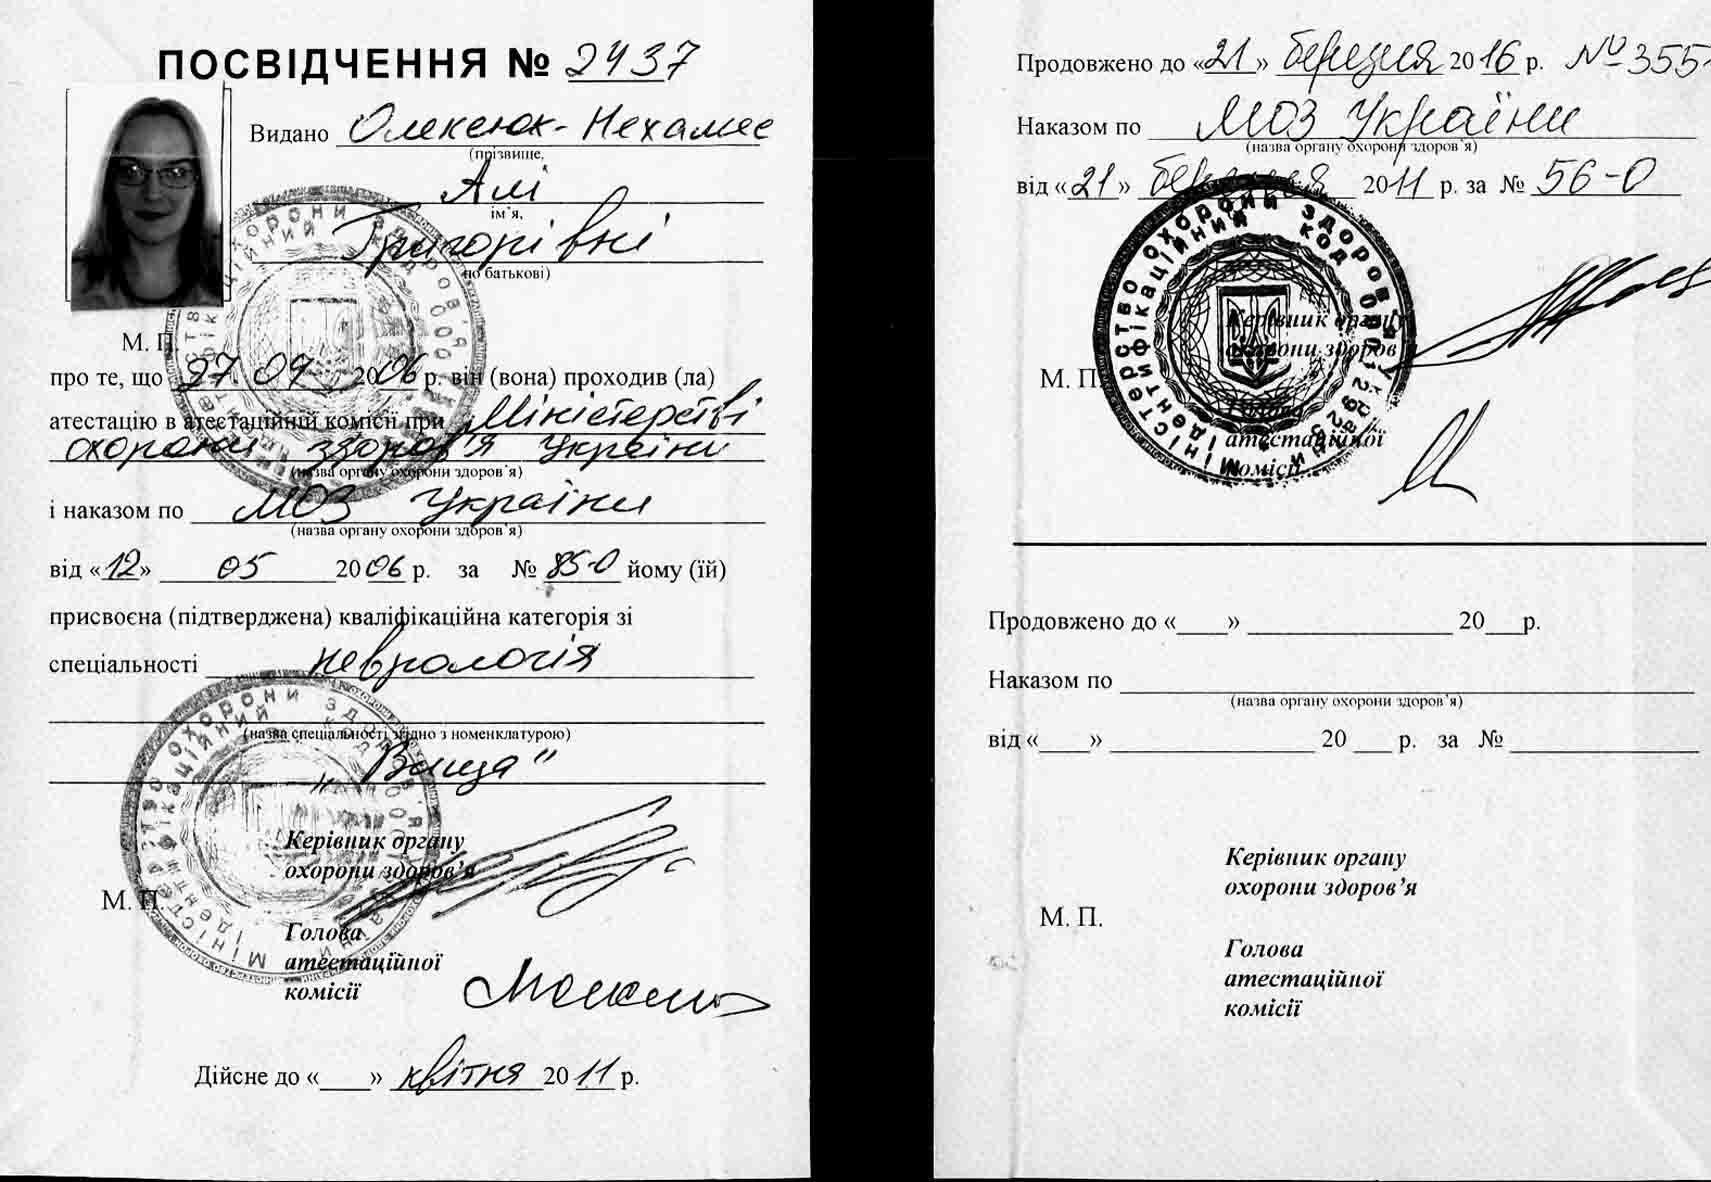 ПОСВІДЧЕННЯ № 2437
Видано Олексюк-Нехамес
(прізвище,
Алі
ім`я,
Григорівні
по батькові)
М. П.
про те, що 27 04 2006 р. він (вона) проходив (ла)
атестацію в атестаційній комісії при Міністерстві
охорони здоров'я України
(назва органу охорони здоров`я)
і наказом по МОЗ України
(назва органу охорони здоров`я)
від «12» 05 2006 р. за № 85-О йому (їй)
присвоєна (підтверджена) кваліфікаційна категорія зі
спеціальності неврологія
(назва спеціальності згідно з номенклатурою)
„Вища"
Керівник органу
охорони здоров’я
М. П.
Голова
атестаційної
комісії
Дійсне до «____» квітня 2011 р.
Продовжено до «21» березня 2016 р. № 355
Наказом по МОЗ України
(назва органу охорони здоров`я)
від «21» березня 2011 р. за № 56-О
Міністерство охорони здоров'я України
Ідентифікаційний код 00012925
Керівник органу
охорони здоров’я
М. П.
Голова
атестаційної
комісії
Продовжено до «____» ________________ 20___р.
Наказом по
(назва органу охорони здоров`я)
від «____» ________________ 20 ___ р. за № _______________
Керівник органу
охорони здоров’я
М. П.
Голова
атестаційної
комісії